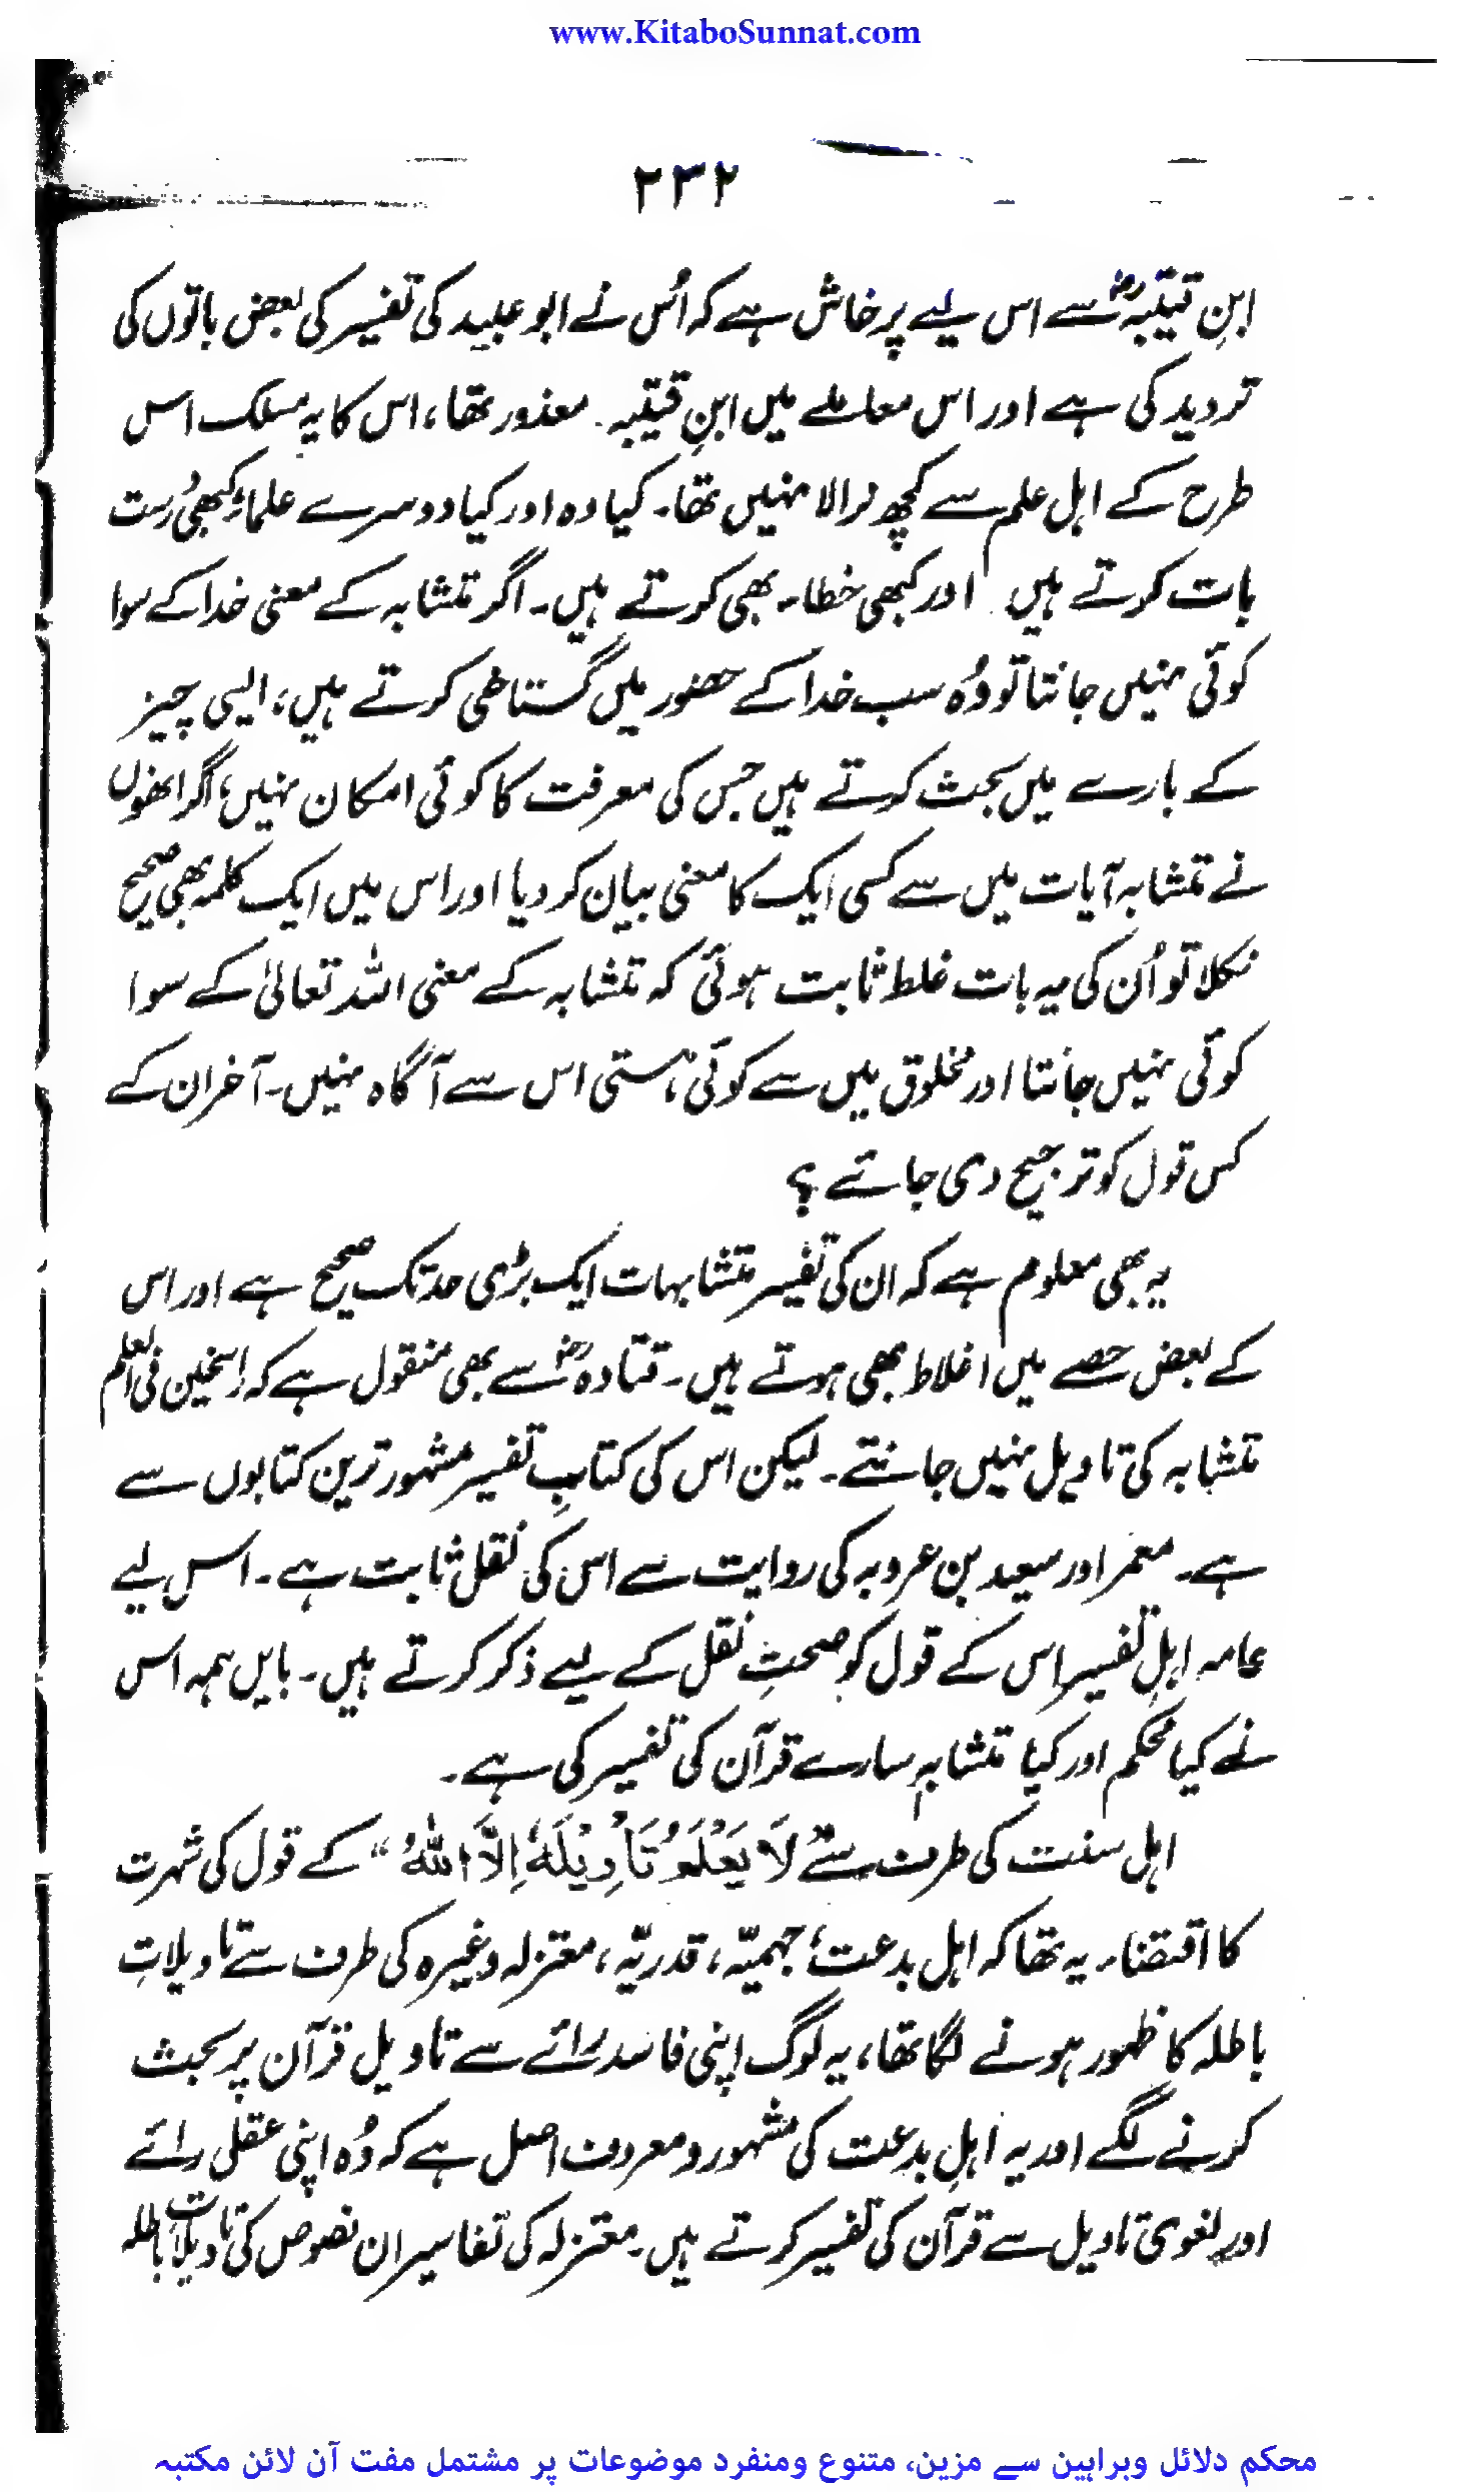 www.KitaboSunnat.com
۲۳۲
ابنِ قتیبہؒ سے اس لیے پرخاش ہے کہ اُس نے ابو عبید کی تفسیر کی بعض باتوں کی
تردید کی ہے اور اس معاملے میں ابنِ قتیبہ معذور تھا، اس کا یہ مسلک اس
طرح کے اہل علم سے کچھ نرالا نہیں تھا۔ کیا وہ اور کیا دوسرے علماءِ کبھی دُرست
بات کرتے ہیں اور کبھی خطاء بھی کرتے ہیں۔ اگر تشابہ کے معنی خدا کے سوا
کوئی نہیں جانتا تو وُہ سب خدا کے حضور میں گستاخی کرتے ہیں، ایسی چیز
کے بارے میں بحث کرتے ہیں جس کی معرفت کا کوئی امکان نہیں؛ اگر انھوں
نے تشابہ آیات میں سے کسی ایک کا معنی بیان کر دیا اور اس میں ایک کلمہ بھی صحیح
نکلا تو اُن کی یہ بات غلط ثابت ہوئی کہ تشابہ کے معنی اللہ تعالیٰ کے سوا
کوئی نہیں جانتا اور مخلوق میں سے کوئی ہستی اس سے آگاہ نہیں۔ آخر ان کے
کس قول کو ترجیح دی جائے ؟
یہ بھی معلوم ہے کہ ان کی تفسیر متشابہات ایک بڑی حد تک صحیح ہے اور اس
کے بعض حصے میں اغلاط بھی ہوتے ہیں۔ قتادہؓ سے بھی منقول ہے کہ راسخین فی العلم
تشابہ کی تاویل نہیں جانتے۔ لیکن اس کی کتابِ تفسیر مشہور ترین کتابوں سے
ہے۔ معمر اور سعید بن عروبہ کی روایت سے اس کی نقل ثابت ہے۔ اس لیے
عامہ اہلِ تفسیر اس کے قول کو صحتِ نقل کے لیے ذکر کرتے ہیں۔ بایں ہمہ اس
نے کیا محکم اور کیا تشابہ سارے قرآن کی تفسیر کی ہے۔
اہل سنت کی طرف سے ”لَا يَعْلَمُ تَأْوِيْلَهٗ اِلَّا اللّٰهُ“ کے قول کی شہرت
کا اقتضاء یہ تھا کہ اہل بدعت؛ جہمیّہ، قدریّہ، معتزلہ وغیرہ کی طرف سے تاویلاتِ
باطلہ کا ظہور ہونے لگا تھا، یہ لوگ اپنی فاسد رائے سے تاویل قرآن پر بحث
کرنے لگے اور یہ اہلِ بدعت کی مشہور و معروف اصل ہے کہ وُہ اپنی عقلی رائے
اور لغوی تاویل سے قرآن کی تفسیر کرتے ہیں۔ معتزلہ کی تفاسیر ان نصوص کی تاویلات باطلہ
محکم دلائل وبراہین سے مزین، متنوع ومنفرد موضوعات پر مشتمل مفت آن لائن مکتبہ